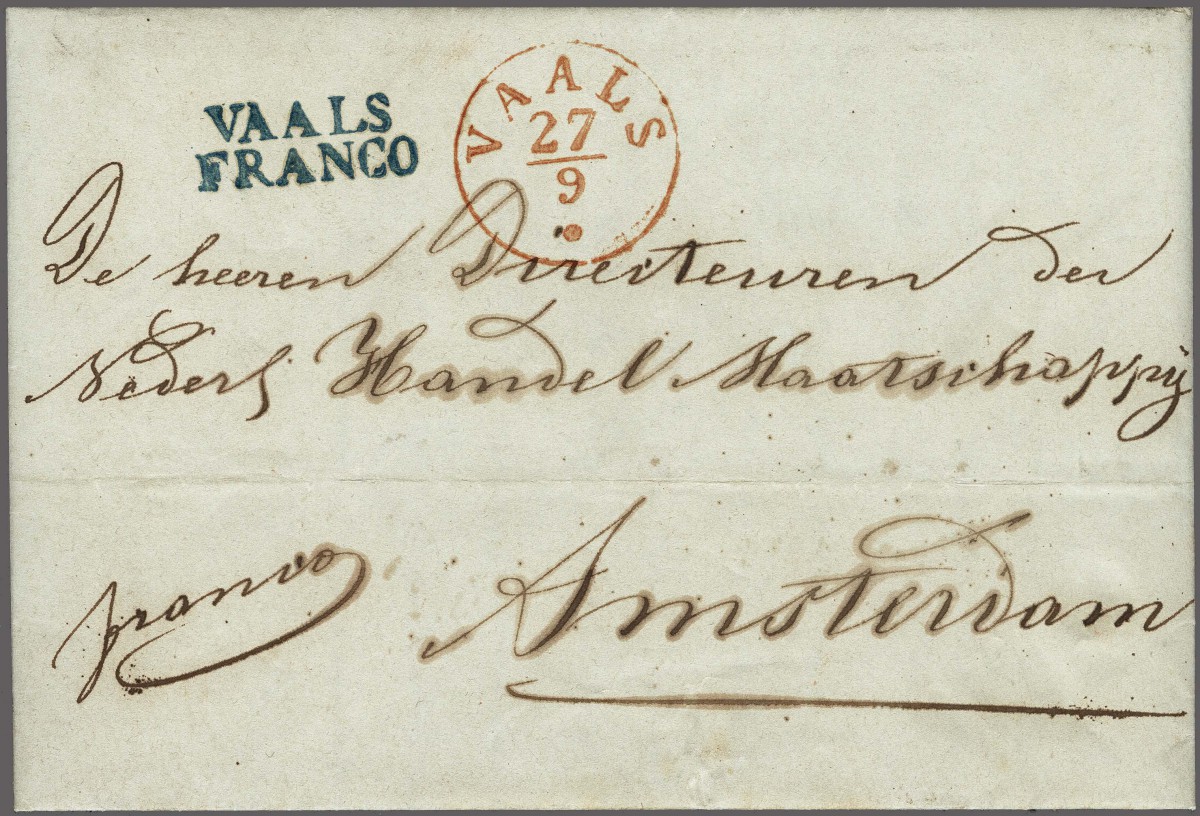 VAALS
FRANCO
VAALS
27
9
De heeren Directeuren der
Nederl Handel Maatschappij
franco
Amsterdam